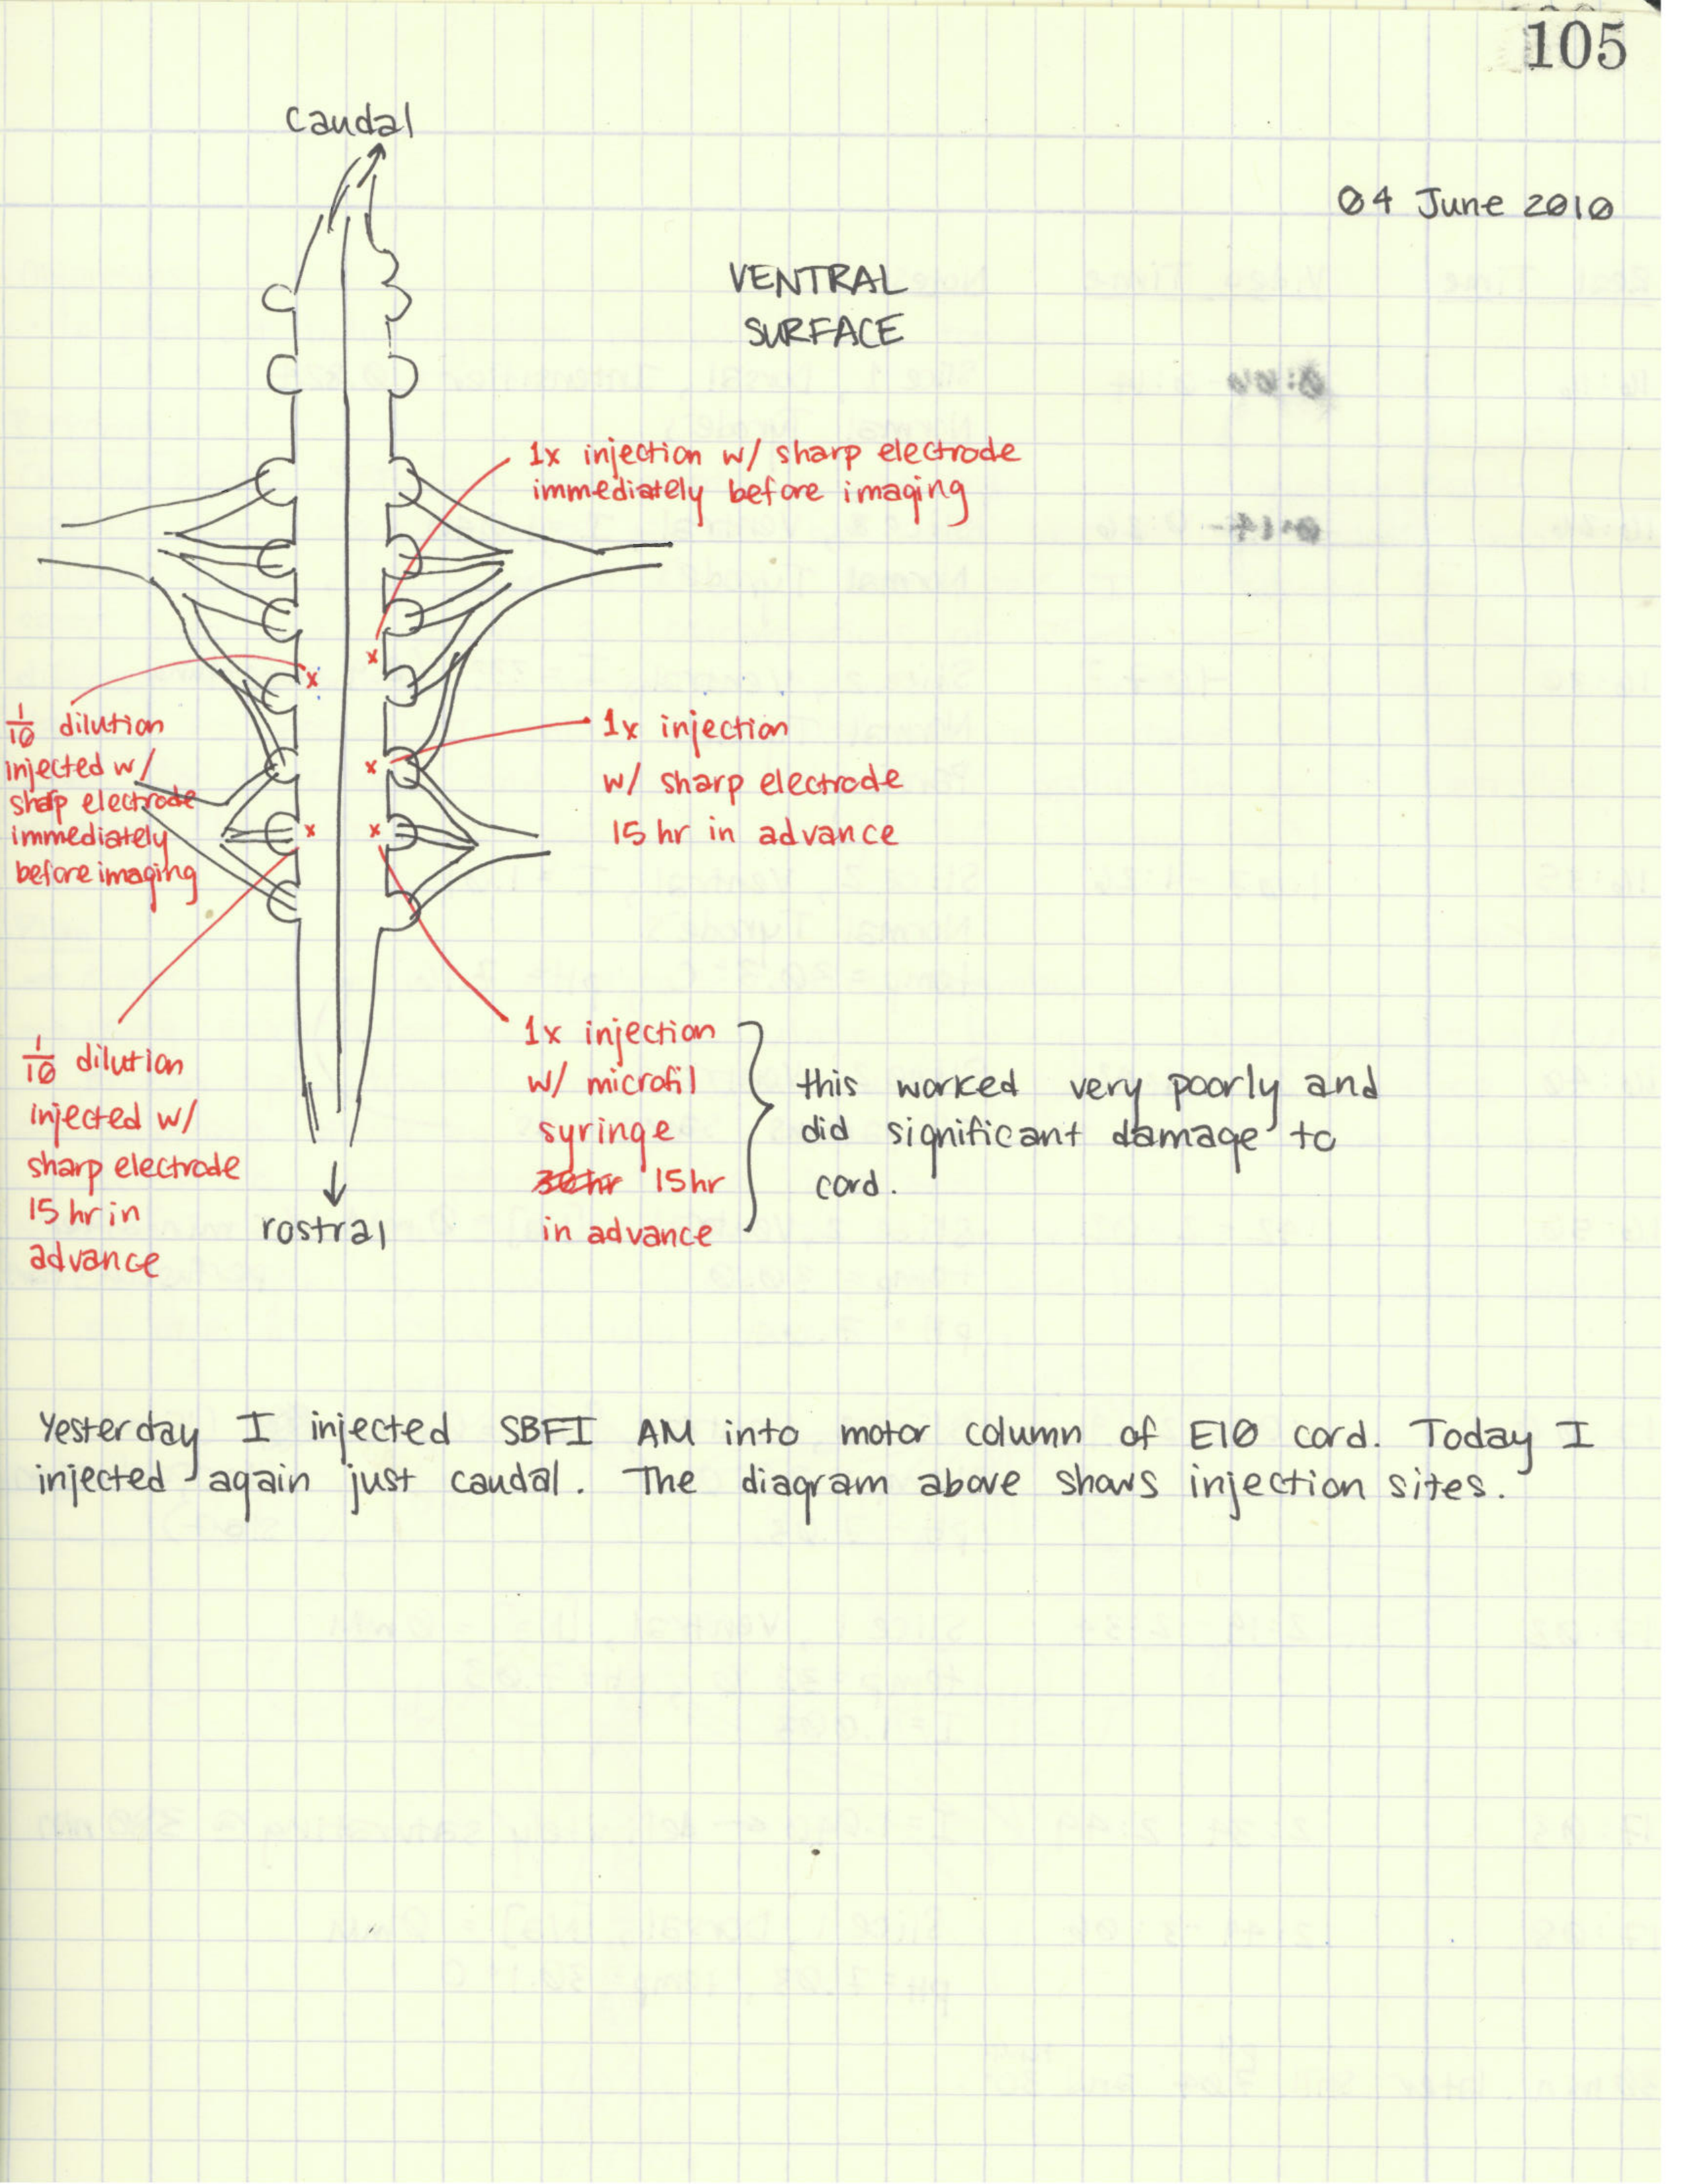 105
caudal
04 June 2010
VENTRAL
SURFACE
1x injection w/ sharp electrode
immediately before imaging
1/10 dilution
injected w/
sharp electrode
immediately
before imaging
1x injection
w/ sharp electrode
15 hr in advance
1/10 dilution
injected w/
sharp electrode
15 hr in
advance
rostral
1x injection
w/ microfil
syringe
30hr 15hr
in advance
this worked very poorly and
did significant damage to
cord.
Yesterday I injected SBFI AM into motor column of E10 cord. Today I
injected again just caudal. The diagram above shows injection sites.